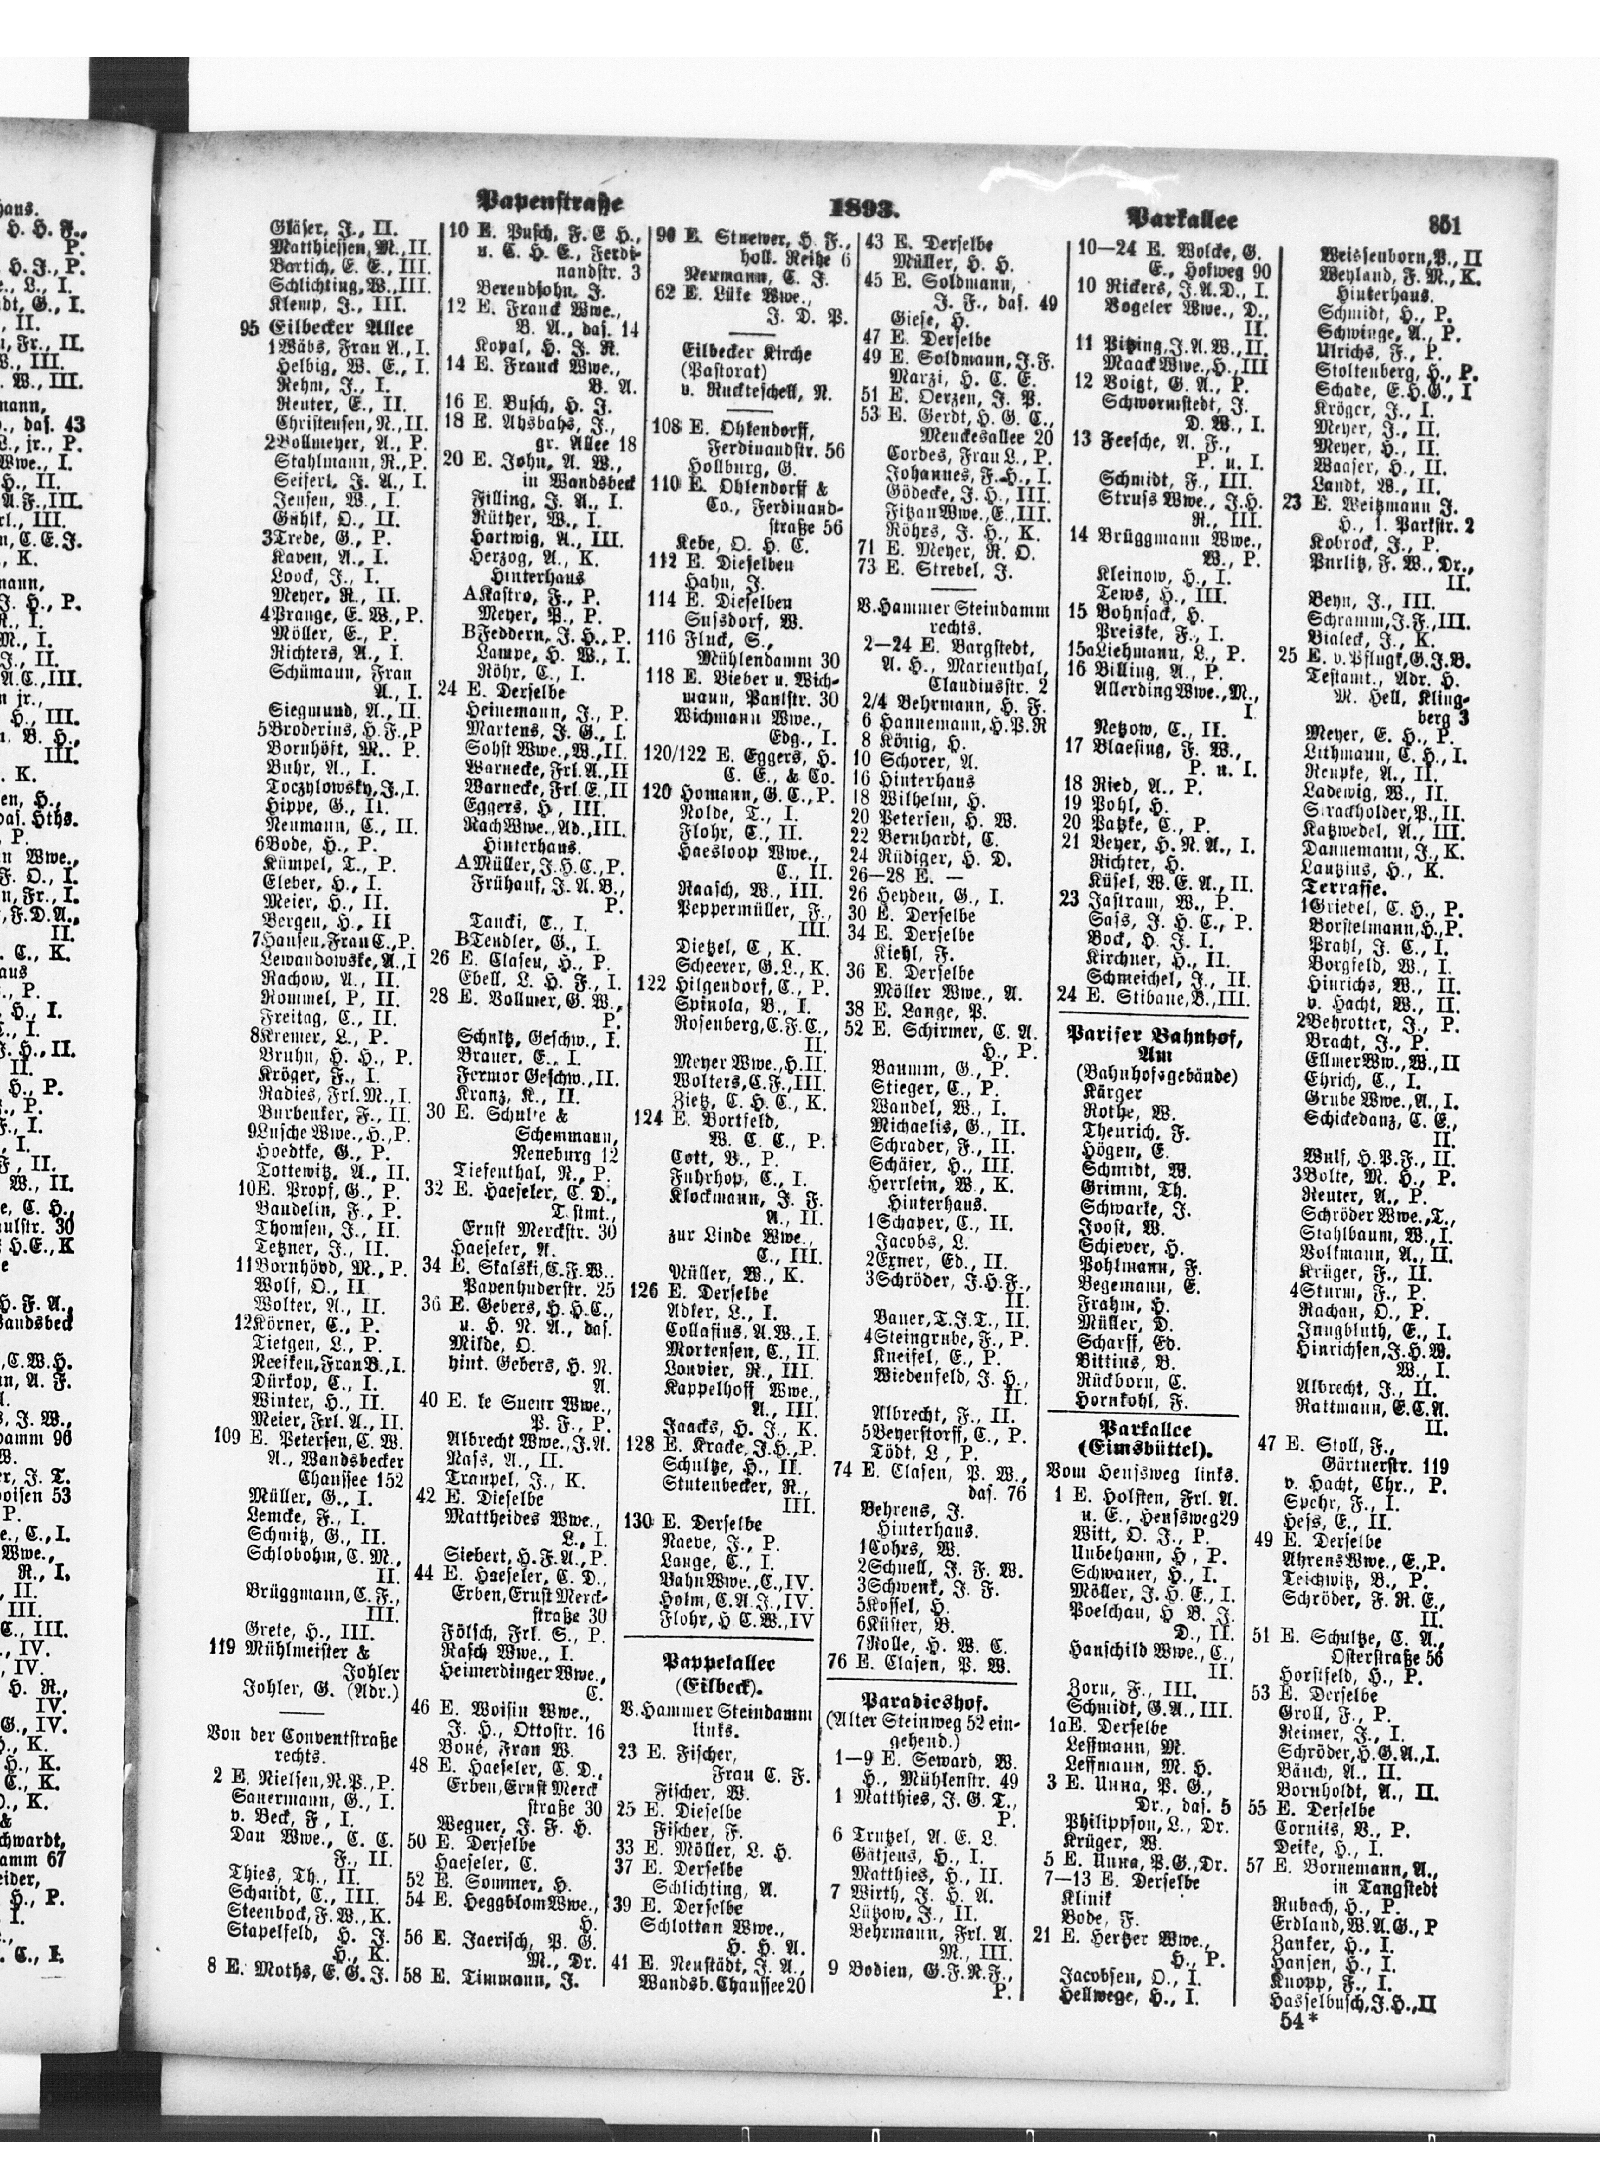 Papenstraße
1893.
Parkallee
851
Gläser, J., II.
Matthiessen, M., II.
Bartsch, E. E., III.
Schlichting, W., III.
Klemp, J., III.
95 Eilbecker Allee
1 Wäbs, Frau A., I.
Helbig, W. E., I.
Rehm, J., I.
Reuter, E., II.
Christensen, N., II.
2 Vollmeyer, A., P.
Stahlmann, R., P.
Seifert, J. A., I.
Jensen, W., I.
Guhlk, O., II.
3 Trede, G., P.
Kaven, A., I.
Loock, J., I.
Meyer, R., II.
4 Prange, E. W., P.
Möller, E., P.
Richters, A., I.
Schümann, Frau
A., I.
Siegmund, A., II.
5 Broderius, H. F., P
Bornhöft, M., P.
Buhr, A., I.
Toczylowsky, J., I.
Hippe, G., II.
Neumann, C., II.
6 Bode, H., P.
Kümpel, T., P.
Eleber, H., I.
Meier, H., II.
Bergen, H., II
7 Hansen, Frau C., P.
Lewandowske, A., I
Rachow, A., II.
Rommel, P, II.
Freitag, C., II.
8 Kremer, L., P.
Bruhn, H. H., P.
Kröger, F., I.
Radies, Frl. M., I.
Burbenker, F., II.
9 Lusche Wwe., H., P.
Hoedtke, G., P.
Tottewitz, A., II.
10 E. Propf, G., P.
Baudelin, F., P.
Thomsen, J., II.
Tetzner, J., II.
11 Bornhövd, M., P.
Wolf, O., II
Wolter, A., II.
12 Körner, C., P.
Tietgen, L., P.
Neesken, Frau B., I.
Dürkop, C., I.
Winter, H., II.
Meier, Frl. A., II.
109 E. Petersen, C. W.
A., Wandsbecker
Chaussee 152
Müller, G., I.
Lemcke, F., I.
Schmitz, G., II.
Schlobohm, C. M.,
II.
Brüggmann, C. F.,
III.
Grete, H., III.
119 Mühlmeister &
Johler
Johler, G. (Adr.)
Von der Conventstraße
rechts.
2 E. Nielsen, N. P., P.
Sauermann, G., I.
v. Beck, F., I.
Dau Wwe., C. C.
F., II.
Thies, Th., II.
Schmidt, C., III.
Steenbock, F. W., K.
Stapelfeld, H. J.
H., K.
8 E. Moths, E. G. J.
10 E. Pusch, F. E H.,
u. C. H. E., Ferdi-
nandstr. 3
Berendsohn, J.
12 E. Franck Wwe.,
B. A., das. 14
Kopal, H. J. R.
14 E. Franck Wwe.,
B. A.
16 E. Busch, H. J.
18 E. Ahsbahs, J.,
gr. Allee 18
20 E. John, A. W.,
in Wandsbeck
Filling, J. A., I.
Rüther, W., I.
Hartwig, A., III.
Herzog, A., K.
Hinterhaus
A Kastro, F., P.
Meyer, P., P.
B Feddern, J. H., P.
Lampe, H. W., I.
Röhr, C., I.
24 E. Derselbe
Heinemann, J., P.
Martens, J. G., I.
Sohst Wwe., W., II.
Warnecke, Frl. A., II
Warnecke, Frl. E., II
Eggers, H, III.
Rach Wwe., Ad., III.
Hinterhaus.
A Müller, J. H. C., P.
Frühauf, J. A. B.,
P.
Taucki, C., I.
B Tendler, G., I.
26 E. Clasen, H., P.
Ebell, L. H. F., I.
28 E. Vollmer, G. W.,
P.
Schultz, Geschw., I.
Brauer, E., I.
Fermor Geschw., II.
Kranz, K., II.
30 E. Schulte &
Schemmann,
Neneburg 12
Tiefenthal, N., P.
32 E. Haeseler, C. D.,
T.stmt.,
Ernst Merckstr. 30
Haeseler, A.
34 E. Skalski, C. F. W.
Papenhuderstr. 25
36 E. Gebers, H. H. C.,
u. H. N. A., das.
Milde, O.
hint. Gebers, H. N.
A.
40 E. le Sueur Wwe.,
P. F., P.
Albrecht Wwe., J. A.
Nass, A., II.
Traupel, J., K.
42 E. Dieselbe
Mattheides Wwe.,
L., I.
Siebert, H. F. A., P.
44 E. Haeseler, C. D.,
Erben, Ernst Merck-
straße 30
Fölsch, Frl. S., P.
Rasch Wwe., I.
Heimerdinger Wwe.,
C.
46 E. Voisin Wwe.,
J. H., Ottostr. 16
Boué, Frau W.
48 E. Haeseler, C. D.,
Erben, Ernst Merck
straße 30
Wegner, J. F. H.
50 E. Derselbe
Haeseler, C.
52 E. Sommer, H.
54 E. Heggblom Wwe.,
H.
56 E. Jaerisch, P. G.
M., Dr.
58 E. Timmann, J.
90 E. Struewer, H. F.,
holl. Reihe 6
Neumann, C. J.
62 E. Lüke Wwe.,
J. D. P.
Eilbecker Kirche
(Pastorat)
v. Ruckteschell, N.
108 E. Ohlendorff,
Ferdinandstr. 56
Hollburg, G.
110 E. Ohlendorff &
Co., Ferdinand-
straße 56
Kebe, O. H. C.
112 E. Dieselben
Hahn, J.
114 E. Dieselben
Sussdorf, W.
116 Fluck, S.,
Mühlendamm 30
118 E. Bieber u. Wich-
mann, Paulstr. 30
Wichmann Wwe.,
Edg., I.
120/122 E. Eggers, H.
C. E., & Co.
120 Homann, G. C., P.
Nolde, T., I.
Flohr, C., II.
Haesloop Wwe.,
C., II.
Raasch, W., III.
Peppermüller, F.,
III.
Dietzel, C, K.
Scheerer, G. L., K.
122 Hilgendorf, C., P.
Spinola, B., I.
Rosenberg, C. F. C.,
II.
Meyer Wwe., H. II.
Wolters, C. F., III.
Zietz, C. H. C., K.
124 E. Bortfeld,
W. C. C., P.
Cott, B., P.
Fuhrhop, C., I.
Klockmann, J. F.
A., II.
zur Linde Wwe.,
C., III.
Müller, W., K.
126 E. Derselbe
Adler, L., I.
Collasius, A. W., I.
Mortensen, C., II.
Louvier, R., III.
Kappelhoff Wwe.,
A., III.
Jaacks, H. J., K.
128 E. Kracke, J. H., P.
Schultze, H., II.
Stutenbecker, R.,
III.
130 E. Derselbe
Raeve, J., P.
Lange, C., I.
Bahn Wwe., C., IV.
Holm, C. A. J., IV.
Flohr, H C. W., IV
Pappelallee
(Eilbeck).
V. Hammer Steindamm
links.
23 E. Fischer,
Frau C. F.
Fischer, W.
25 E. Dieselbe
Fischer, F.
33 E. Möller, L. H.
37 E. Derselbe
Schlichting, A.
39 E. Derselbe
Schlottau Wwe.,
H. H. A.
41 E. Neustädt, J. A.,
Wandsb. Chaussee 20
43 E. Derselbe
Müller, H. H.
45 E. Soldmann,
J. F., das. 49
Giese, H.
47 E. Derselbe
49 E. Soldmann, J. F.
Marzi, H. C. E.
51 E. Oerzen, J. P.
53 E. Gerdt, H. G. C.,
Menckesallee 20
Cordes, Frau L., P.
Johannes, F. H., I.
Gödecke, J. H., III.
Fitzau Wwe., E., III.
Röhrs, J. H., K.
71 E. Meyer, R. O.
73 E. Strebel, J.
V. Hammer Steindamm
rechts.
2—24 E. Bargstedt,
A. H., Marienthal,
Claudiusstr. 2
2/4 Behrmann, H. F.
6 Hannemann, H. P. R
8 König, H.
10 Schorer, A.
16 Hinterhaus
18 Wilhelm, H.
20 Petersen, H. W.
22 Bernhardt, C.
24 Rüdiger, H. D.
26—28 E. —
26 Heyden, G., I.
30 E. Derselbe
34 E. Derselbe
Kiehl, F.
36 E. Derselbe
Möller Wwe., A.
38 E. Lange, P.
52 E. Schirmer, C. A.
H., P.
Baumm, G., P.
Stieger, C., P.
Wandel, W., I.
Michaelis, G., II.
Schrader, F., II.
Schäfer, H., III.
Herrlein, W., K.
Hinterhaus.
1 Schaper, C., II.
Jacobs, L.
2 Exner, Ed., II.
3 Schröder, J. H. F.,
II.
Bauer, T. J. T., II.
4 Steingrube, F., P.
Kneisel, E., P.
Wiedenfeld, J. H.,
II.
Albrecht, F., II.
5 Beyerstorff, C., P.
Tödt, L, P.
74 E. Clasen, P. W.,
das. 76
Behrens, J.
Hinterhaus.
1 Cohrs, W.
2 Schnell, J. F. W.
3 Schwenk, J. F.
5 Kossel, H.
6 Küster, B.
7 Rolle, H. W. C.
76 E. Clasen, P. W.
Paradieshof.
(Alter Steinweg 52 ein-
gehend.)
1—9 E. Seward, W.
H., Mühlenstr. 49
1 Matthies, J. G. T.,
P.
6 Trutzel, A. E. L.
Gätjens, H., I.
Matthies, H., II.
7 Wirth, J. H. A.
Lützow, J., II.
Behrmann, Frl. A.
M., III.
9 Bodien, G. F. R. F.,
P.
10—24 E. Wolcke, G.
E., Hofweg 90
10 Rickers, J. A. D., I.
Vogeler Wwe., D.,
II.
11 Pitzing, J. A. W., II.
Maack Wwe., H., III
12 Voigt, G. A., P.
Schwormstedt, J.
D. W., I.
13 Feesche, A. F.,
P. u. I.
Schmidt, F., III.
Struss Wwe., J. H.
R., III.
14 Brüggmann Wwe.,
W., P.
Kleinow, H., I.
Tews, H., III.
15 Bohnsack, H.
Preiske, F., I.
15a Liehmann, L., P.
16 Billing, A., P.
Allerding Wwe., M.,
I.
Netzow, C., II.
17 Blaesing, F. W.,
P. u. I.
18 Ried, A., P.
19 Pohl, H.
20 Patzke, C., P.
21 Beyer, H. N. A., I.
Richter, H.
Küsel, W. E. A., II.
23 Jastram, W., P.
Sass, J. H. C., P.
Bock, H. J. I.
Kirchner, H., II.
Schmeichel, J., II.
24 E. Stibane, B., III.
Pariser Bahnhof,
Am
(Bahnhofsgebäude)
Kärger
Rothe, W.
Theurich, F.
Högen, E.
Schmidt, W.
Grimm, Th.
Schwarke, J.
Joost, W.
Schiever, H.
Pohlmann, F.
Begemann, E.
Frahm, H.
Müller, D.
Scharff, Ed.
Vittius, B.
Rückborn, C.
Hornkohl, F.
Parkallee
(Eimsbüttel).
Vom Heussweg links.
1 E. Holsten, Frl. A.
u. E., Heussweg 29
Witt, O. J., P.
Unbehaun, H, P.
Schwauer, H., I.
Möller, J. H. E., I.
Poelchau, H B. J.
D., II.
Hanschild Wwe., C.,
II.
Zorn, F., III.
Schmidt, G. A., III.
1a E. Derselbe
Leffmann, M.
Leffmann, M. H.
3 E. Unna, P. G.,
Dr., das. 5
Philippson, L., Dr.
Krüger, W.
5 E. Unna, P. G., Dr.
7—13 E. Derselbe
Klinik
Bode, F.
21 E. Hertzer Wwe.,
H., P.
Jacobsen, O., I.
Hellwege, H., I.
Weissenborn, P., II
Weyland, F. M., K.
Hinterhaus.
Schmidt, H., P.
Schwinge, A., P.
Ulrichs, F., P.
Stoltenberg, H., P.
Schade, E. H. G., I
Kröger, J., I.
Meyer, J., II.
Meyer, H., II.
Waaser, H., II.
Landt, W., II.
23 E. Weitzmann J.
H., 1. Parkstr. 2
Kobrock, J., P.
Purlitz, F. W., Dr.,
II.
Beyn, J., III.
Schramm, J. F., III.
Bialeck, J., K.
25 E. v. Pflugk, G. J. B.
Testamt., Adr. H.
M. Hell, Kling-
berg 3
Meyer, E. H., P.
Lithmann, C. H., I.
Reupke, A., II.
Ladewig, W., II.
Strackholder, P., II.
Katzwedel, A., III.
Dannemann, J., K.
Lautzins, H., K.
Terrasse.
1 Griebel, C. H., P.
Borstelmann, H., P.
Prahl, J. C., I.
Borgfeld, W., I.
Hinrichs, W., II.
v. Hacht, W., II.
2 Behrotter, J., P.
Bracht, J., P.
Ellmer Ww., W., II
Ehrich, C., I.
Grube Wwe., A., I.
Schickedanz, C. E.,
II.
Wulf, H. P. F., II.
3 Bolte, M. H., P.
Reuter, A., P.
Schröder Wwe., T.,
Stahlbaum, W., I.
Volkmann, A., II.
Krüger, F., II.
4 Sturm, F., P.
Rachau, O., P.
Jungbluth, E., I.
Hinrichsen, J. H. W.
W., I.
Albrecht, J., II.
Rattmann, E. C. A.
II.
47 E. Stoll, F.,
Gärtnerstr. 119
v. Hacht, Chr., P.
Spehr, F., I.
Hess, E., II.
49 E. Derselbe
Ahrens Wwe., E., P.
Teichwitz, B., P.
Schröder, F. R. E.,
II.
51 E. Schultze, C. A.,
Osterstraße 56
Horstfeld, H., P.
53 E. Derselbe
Groll, F., P.
Reimer, J., I.
Schröder, H. G. A., I.
Bäuch, A., II.
Bornholdt, A., II.
55 E. Derselbe
Cornils, B., P.
Deike, H., I.
57 E. Bornemann, A.,
in Tangstedt
Rubach, H., P.
Erdland, W. A. G., P
Zanker, H., I.
Hansen, H., I.
Knopp, F., I.
Hasselbusch, J. H., II
54*